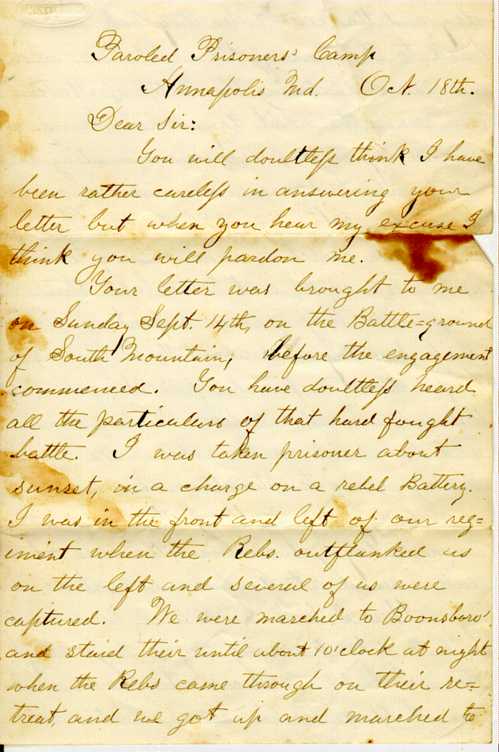 Paroled Prisoners' Camp
Annapolis Md. Oct. 18th.
Dear Sir:
You will doubtless think I have
been rather careless in answering your
letter but when you hear my excuse I
think you will pardon me.
Your letter was brought to me
on Sunday Sept. 14th, on the Battle=ground
of South Mountain, before the engagement
commenced. You have doubtless heard
all the particulars of that hard fought
battle. I was taken prisoner about
sunset, in a charge on a rebel Battery.
I was in the front and left of our reg=
iment when the Rebs. outflanked us
on the left and several of us were
captured. We were marched to Boonsboro'
and staid their until about 10'clock at night
when the Rebs came through on their re=
treat, and we got up and marched to